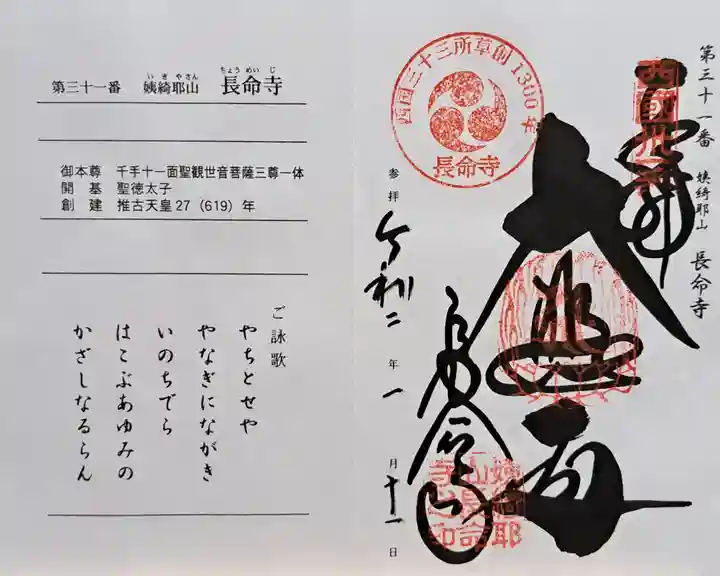 第三十一番 姨綺耶山 長命寺
いきやさん
ちょうめいじ
御本尊 千手十一面聖観世音菩薩三尊一体
開基 聖徳太子
創建 推古天皇27（619）年
ご詠歌
やちとせや
やなぎにながき
いのちでら
はこぶあゆみの
かざしなるらん
第三十一番 姨綺耶山 長命寺
西国三十三所草創1300年
長命寺
参拝 令和二年一月十一日
長命寺
姨綺耶山長命寺之印